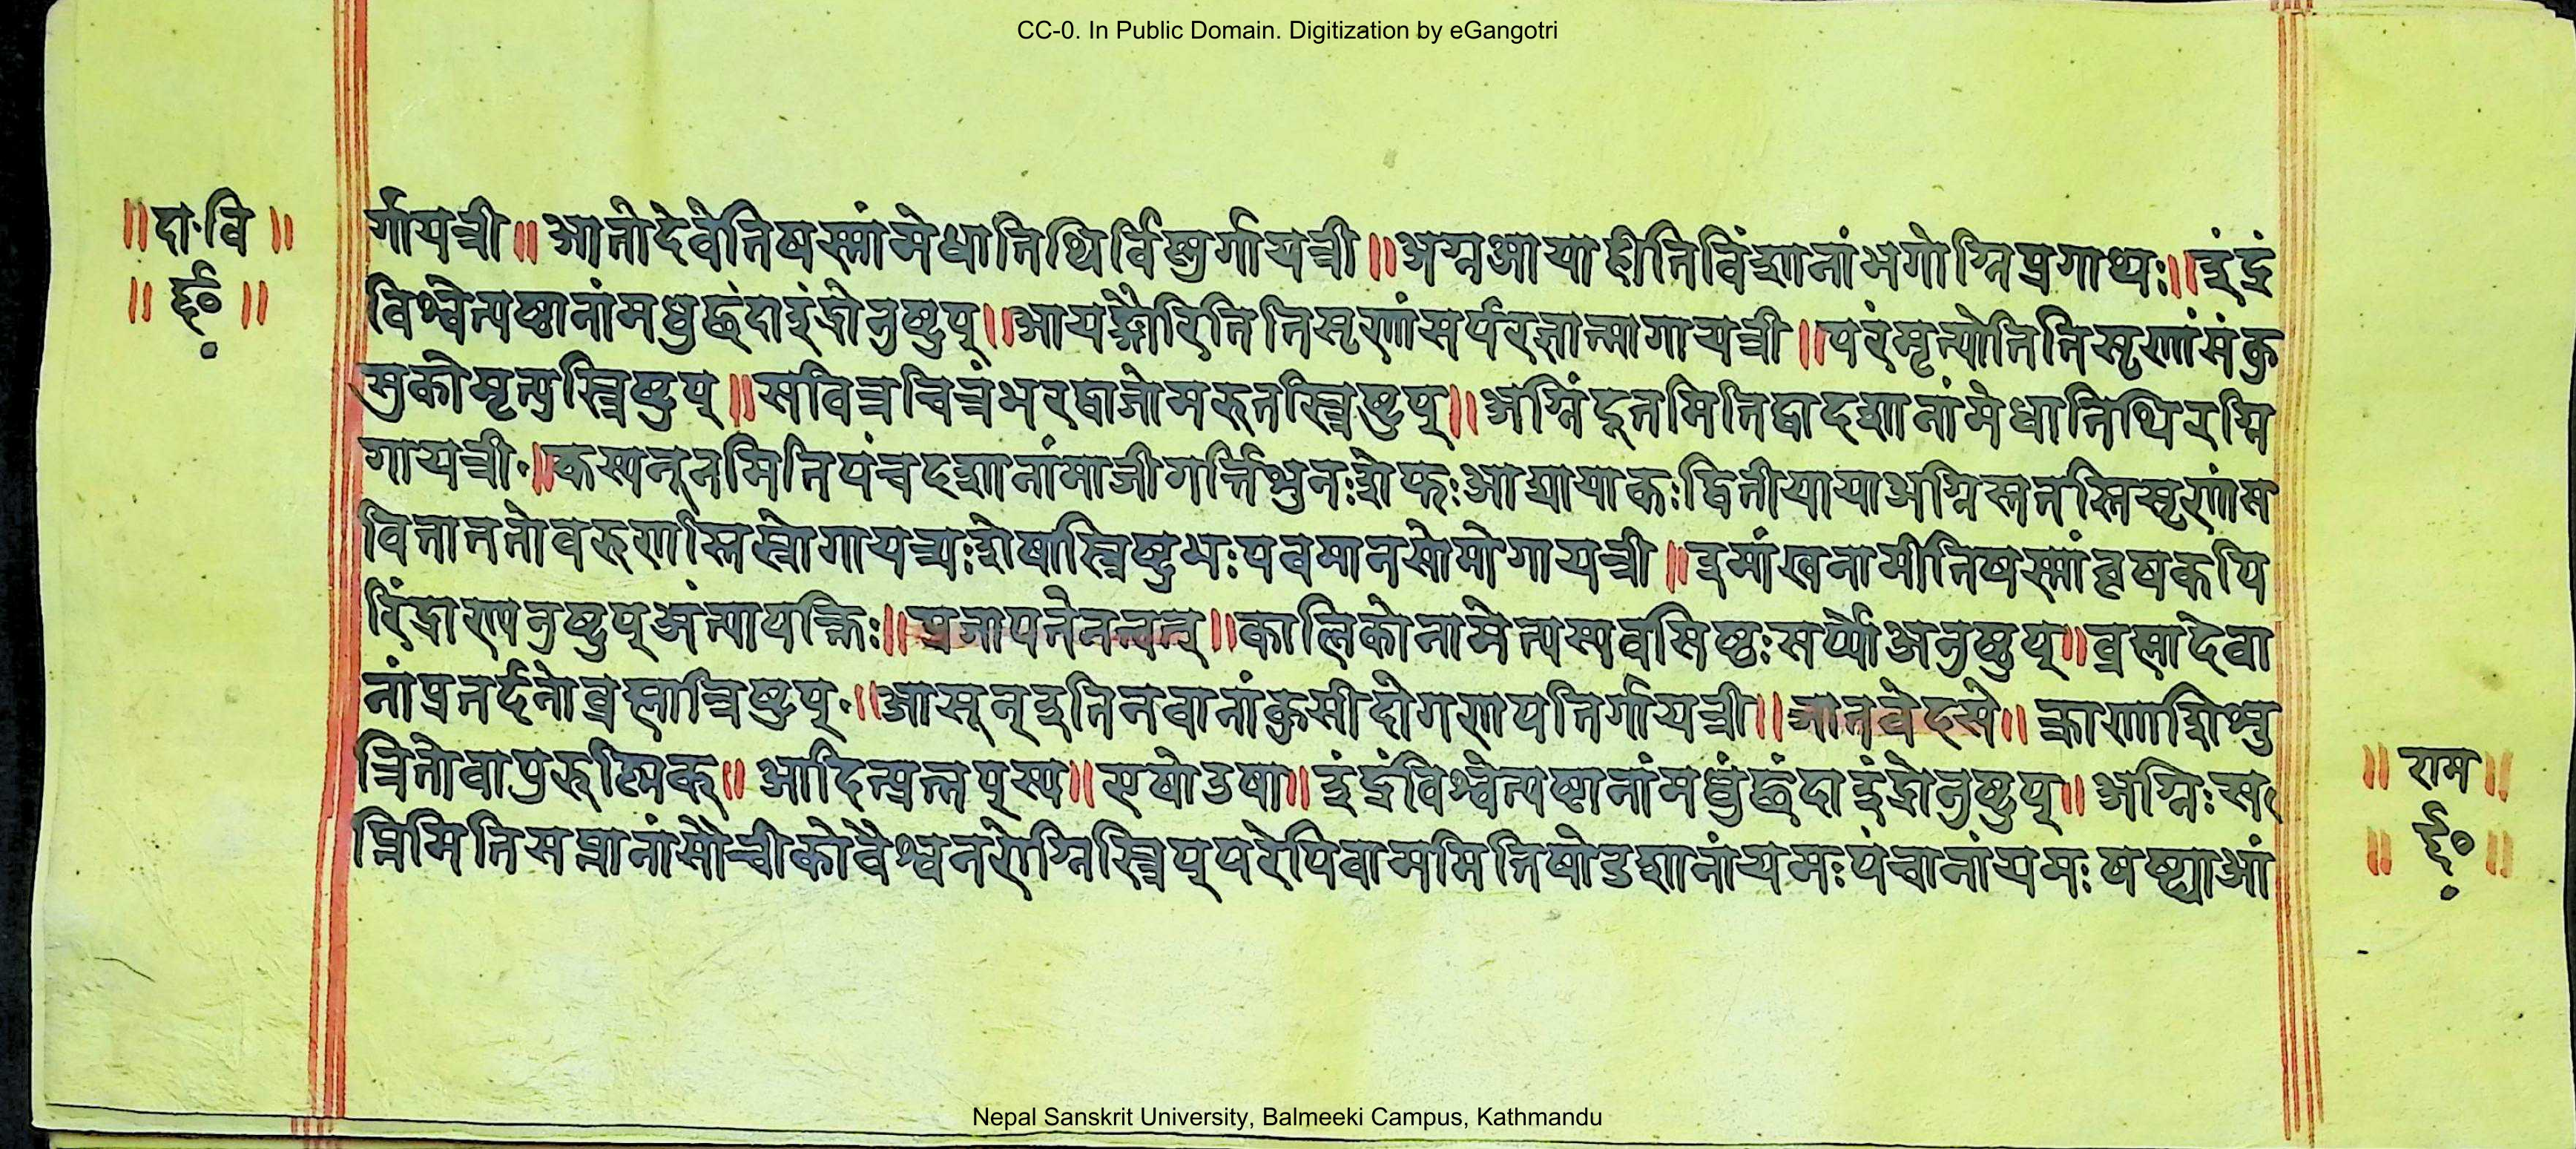 CC-0. In Public Domain. Digitization by eGangotri
॥दा॰वि॥
र्गायत्री॥आनोदेवेतिषस्मांमेधातिथिर्विस्मुर्गायत्री॥अग्नआयाहीतिविंशानांभगोग्निप्रगाथः॥इंद्रं
विश्वेत्यष्टानांमधुछंदाइंद्रोनुष्टुप्॥आयङ्गौरितितिसृणांसर्परज्ञात्मागायत्री॥परंमृत्योतितिसृणांसंकु
सुकोमृत्युस्त्रिष्टुप्॥सवित्रचित्रंभरद्वाजोमरुतस्त्रिष्टुप्॥अग्निंदूतमितिद्वादशानांमेधातिथिरग्नि
गायत्री॰॥कस्यनूनमितिपंचदशानांमाजीगर्त्तिश्रुनःशेफःआद्यायाकःद्वितीयायाअग्निस्ततस्तिसृणांस
वितानतोवरुणस्तिस्त्रोगायत्र्यःशेषास्त्रिष्टुभःपवमानसोमोगायत्री॥इमांखनामीतिषस्मांवृषकपि
रिंद्राण्यनुष्टुप्अंत्यापङ्क्तिः॥प्रजापतेनत्वत्॥कालिकोनामेत्यस्यवसिष्ठःसर्प्पोअनुष्टुप्॥ब्रह्मादेवा
नांप्रतर्दनोब्रह्मात्रिष्टुप्॰॥आसून्इतिनवानांकुसीदोगणपतिर्गायत्री॥जातवेदसे॥क्राणाशिश्रु
त्रितोवाप्रुरुष्मिक्॥आदित्प्रत्नप्स्य॥एषोउषा॥इंद्रंविश्वेत्यष्टानांमधुंछंदाइंद्रोनुष्टुप्॥अग्निःस
प्तिमितिसप्तानांसोचीकोवैश्वनरोग्निस्त्रिप्परेपिवाममितिषोडशानांयमःपंचानांयमःषष्ट्याआं
॥राम॥
Nepal Sanskrit University, Balmeeki Campus, Kathmandu